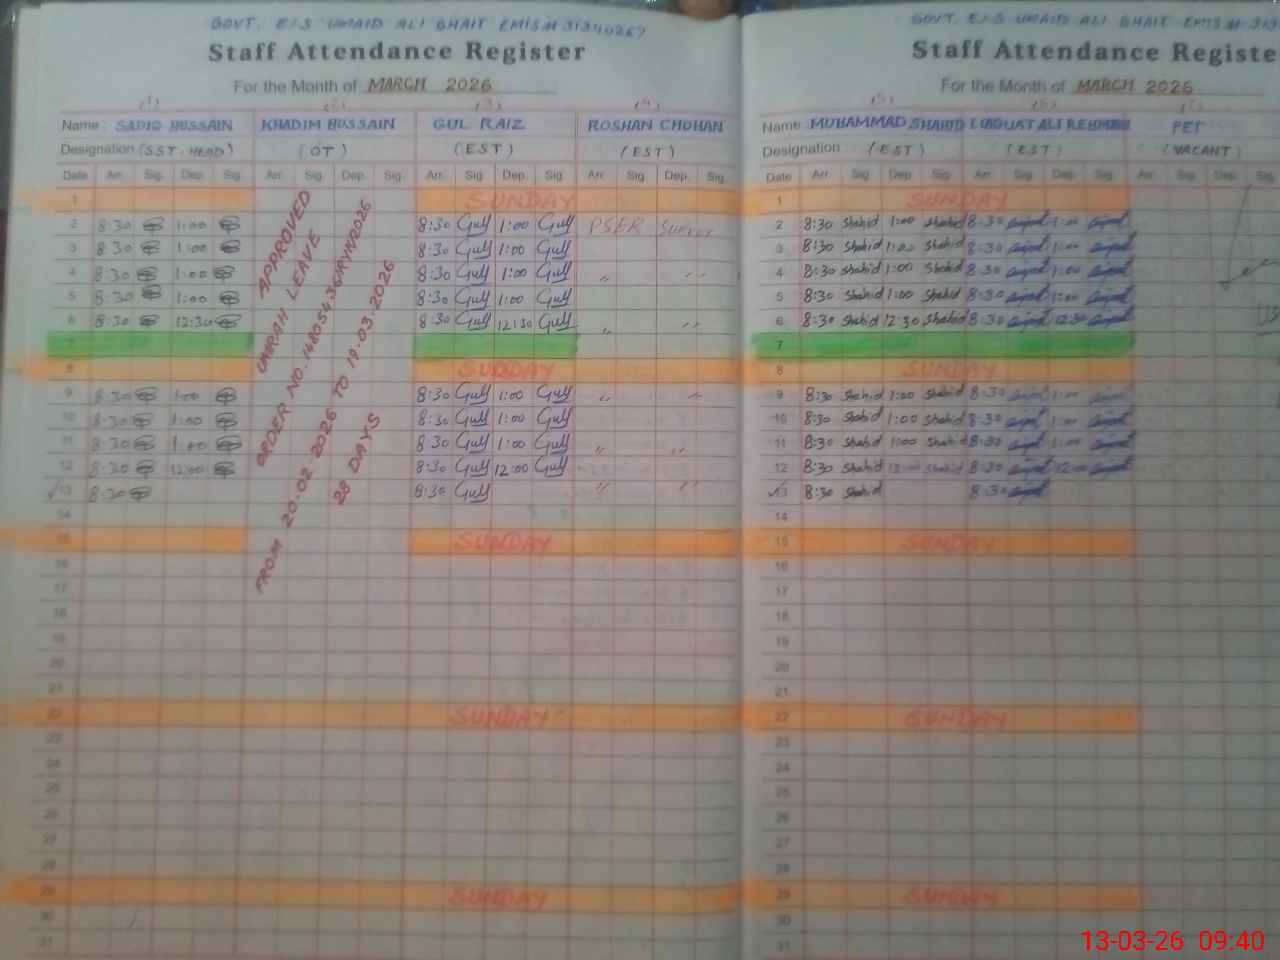 GOVT. E/S UMAID ALI BHAIT EMIS # 31340267
Staff Attendance Register
For the Month of MARCH 2026
(1) (2) (3) (4)
Name: SADIQ HUSSAIN KHADIM HUSSAIN GUL RAIZ ROSHAN CHOHAN
Designation (SST, HEAD) (OT) (EST) (EST)
Date Arr. Sig. Dep. Sig. Arr. Sig. Dep. Sig. Arr. Sig. Dep. Sig. Arr. Sig. Dep. Sig.
1 SUNDAY
2 8:30 1:00 8:30 Gull 1:00 Gull PSER Survey
3 8:30 1:00 8:30 Gull 1:00 Gull
4 8:30 1:00 8:30 Gull 1:00 Gull " "
5 8:30 1:00 8:30 Gull 1:00 Gull
6 8:30 12:30 8:30 Gull 12:30 Gull " "
7
8 SUNDAY
9 8:30 1:00 8:30 Gull 1:00 Gull " "
10 8:30 1:00 8:30 Gull 1:00 Gull
11 8:30 1:00 8:30 Gull 1:00 Gull " "
12 8:30 12:00 8:30 Gull 12:00 Gull
13 8:30 8:30 Gull " "
14
15 SUNDAY
16
17
18
19
20
21
22 SUNDAY
23
24
25
26
27
28
29 SUNDAY
30
31
APPROVED
UMRAH LEAVE
ORDER NO.
FROM 20-02-2026 TO 19-03-2026
28 DAYS
GOVT. E/S UMAID ALI BHAIT EMIS # 313
Staff Attendance Registe
For the Month of MARCH 2026
(5) (6) (7)
Name: MUHAMMAD SHAHID LIAQUAT ALI REHMANI PET
Designation (EST) (EST) (VACANT)
Date Arr. Sig. Dep. Sig. Arr. Sig. Dep. Sig. Arr. Sig. Dep. Sig.
1 SUNDAY
2 8:30 Shahid 1:00 Shahid 8:30 1:00
3 8:30 Shahid 1:00 Shahid 8:30 1:00
4 8:30 Shahid 1:00 Shahid 8:30 1:00
5 8:30 Shahid 1:00 Shahid 8:30 1:00
6 8:30 Shahid 12:30 Shahid 8:30 12:30
7
8 SUNDAY
9 8:30 Shahid 1:00 Shahid 8:30 1:00
10 8:30 Shahid 1:00 Shahid 8:30 1:00
11 8:30 Shahid 1:00 Shahid 8:30 1:00
12 8:30 Shahid 12:00 Shahid 8:30 12:00
13 8:30 Shahid 8:30
14
15 SUNDAY
16
17
18
19
20
21
22 SUNDAY
23
24
25
26
27
28
29 SUNDAY
30
31
13-03-26 09:40